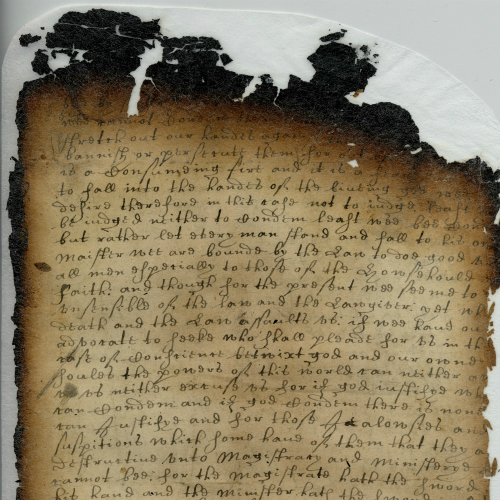 wee cannot
stretch out our handes again
bannish or persecute them for
is a Consumeing fire and it is a
to fall into the handes of the liueing
desire therefore in this case not to iudge least
be iudged neither to Condem least wee bee
but rather let euery man stand and fall to his
Maister wee are bounde by the Law to doe good
all men espetially to those of the howshould
faith; and though for the present wee seeme to
vnsensible of the law and the Lawgiver: yet wh
death and the Law assaults vs: if wee haue ou
aduocate to seeke who shall pleade for vs in th
case of Conscience betwixt god and our owne
soules the powers of this world can neither
vs neither excuse vs for if god iustifye wh
can Condem and if god Condem there is none
can Justifye and for those Jealowsies an
suspitions which some haue of them that they a
destructiue vnto Magistracy and Ministerye
cannot bee: for the Magistrate hath the sword
his hand and the Minister hath the sword